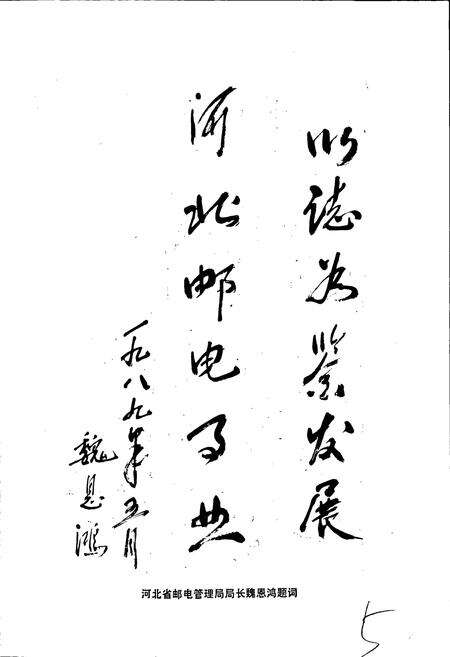 以誌为鉴发展
河北邮电事业
一九八九年五月
魏恩鸿
河北省邮电管理局局长魏恩鸿题词
5